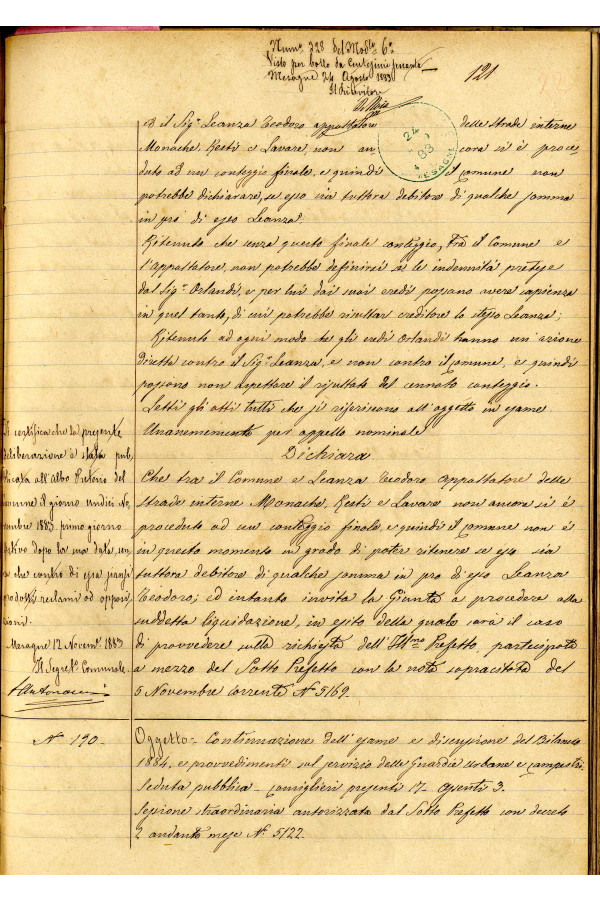 Num.º 328 del Mod.lo 6º
Visto per bollo da Centesimi sessanta
Mesagne 24 Agosto 1883
Il Ricevitore
121
24
83
MESAGNE
E il Sig.r Leanza Teodoro appaltatore delle strade interne
Monache, Resti e Lavare, non ancora si è proce
duto ad un conteggio finale, e quindi il Comune non
potrebbe dichiarare, se esso sia tuttora debitore di qualche somma
in pro di esso Leanza.
Ritenuto che senza questo finale conteggio, tra il Comune e
l'appaltatore, non potrebbe definirsi se le indennità pretese
dal Sig.r Orlandi, e per lui dai suoi eredi possano avere capienza
in quel tanto, di cui potrebbe risultar creditore lo stesso Leanza;
Ritenuto ad ogni modo che gli eredi Orlandi hanno un'azione
diretta contro il Sig.r Leanza, e non contro il Comune, e quindi
possono non aspettare il risultato del cennato conteggio.
Letti gli atti tutti che si riferiscono all'oggetto in esame
Unanimemente per appello nominale
Dichiara
Che tra il Comune e Leanza Teodoro appaltatore delle
strade interne Monache, Resti e Lavare non ancora si è
proceduto ad un conteggio finale, e quindi il Comune non è
in questo momento in grado di poter ritenere se esso sia
tuttora debitore di qualche somma in pro di esso Leanza
Teodoro; ed intanto invita la Giunta a procedere alla
suddetta liquidazione, in esito della quale sarà il caso
di provvedere sulla richiesta dell'Ill.mo Prefetto, partecipata
a mezzo del Sotto Prefetto con la nota sopracitata del
6 Novembre corrente Nº 5169.
Si certifica che la presente
deliberazione è stata pub
blicata all'Albo Pretorio del
Comune il giorno undici No
vembre 1883 primo giorno
festivo dopo la sua data, sen
za che contro di essa siansi
prodotti reclami od opposi
zioni.
Mesagne 12 Novem.e 1883
Il Segret.o Comunale
Nº 190.
Oggetto = Continuazione dell'esame e discussione del Bilancio
1884, e provvedimenti sul servizio delle Guardie urbane e campestri.
Seduta pubblica - Consiglieri presenti 17 - assenti 3.
Sessione straordinaria autorizzata dal Sotto Prefetto con decreto
2 andante mese Nº 5122.